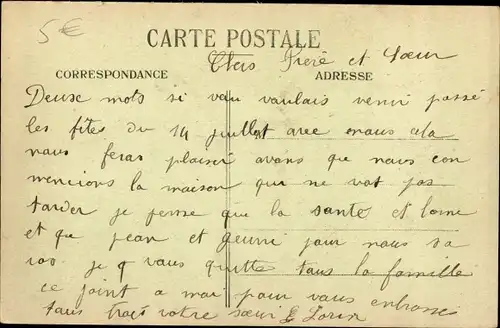 5€
CARTE POSTALE
Chers Frère et Sœur
CORRESPONDANCE
ADRESSE
Deuse mots si vou voulais venir passé
les fites du 14 juillet avec enous cela
nous feras plaisir avans que nous con
mencions la maison qui ne vat pas
tarder je pense que la santé et bonne
et que jean et jouir nous sa
ros. je vous quitte tous la famille
ce joint a moi pour vous enbrasse
tous trois votre sœur E Lorin